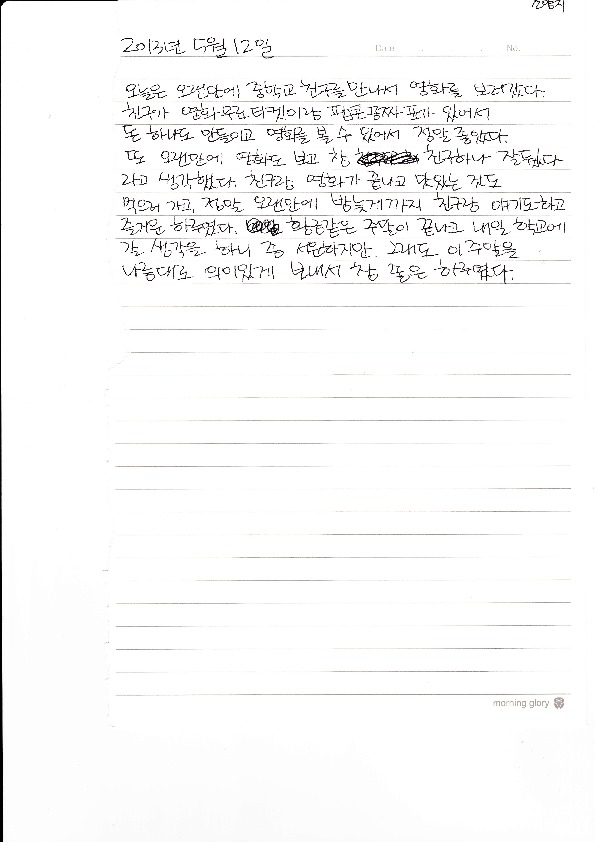 2013년 5월 12일
Date . . No.
오늘은 오랜만에 중학교 친구를 만나서 영화를 보러갔다.
친구가 영화 무료 티켓이랑 팝콘 공짜 표가 있어서
돈 하나도 안들이고 영화를 볼 수 있어서 정말 좋았다.
또 오랜만에 영화도 보고 참 친구하나 잘뒀다
라고 생각했다. 친구랑 영화가 끝나고 맛있는 것도
먹으러 가고, 정말 오랜만에 밤늦게까지 친구랑 얘기도 하고
즐거운 하루였다. 황금같은 주말이 끝나고 내일 학교에
갈 생각을 하니 좀 서운하지만 그래도 이 주말을
나름대로 의미있게 보내서 참 좋은 하루였다.
morning glory